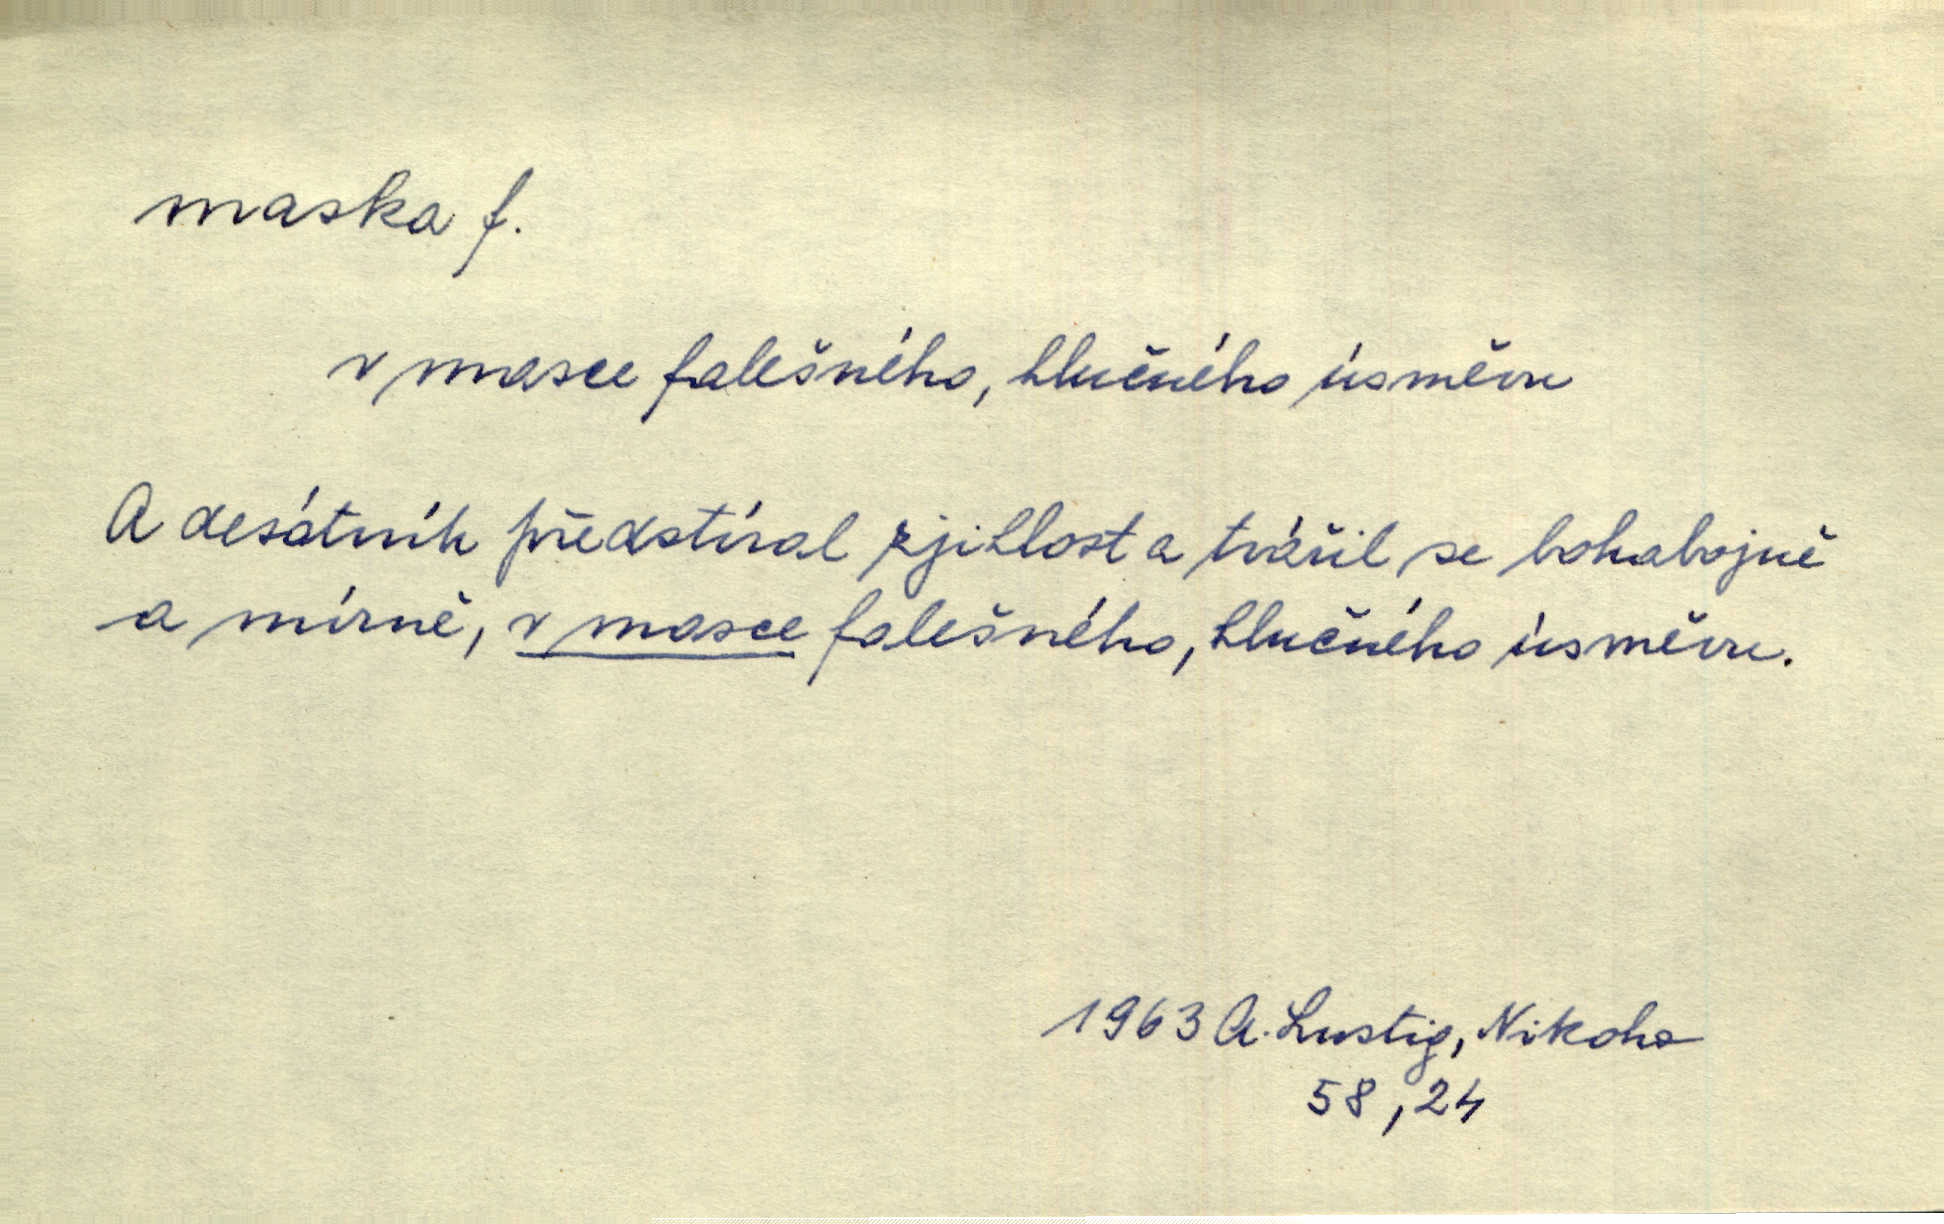 maska f.
v masce falešného, hlučného úsměvu
A desátník předstíral zjihlost a tvářil se bohabojně
a mírně, v masce falešného, hlučného úsměvu.
1963 A. Lustig, Nikoho
58, 24